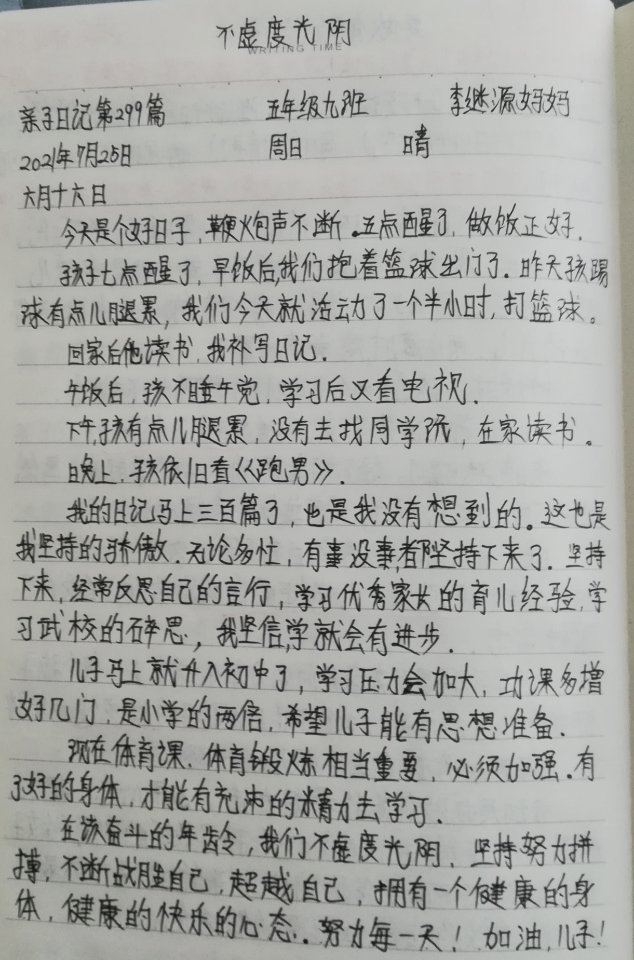 不虚度光阴
WRITING TIME
亲子日记第299篇 五年级九班 李继源妈妈
2021年7月25日 周日 晴
六月十六日
今天是个好日子,鞭炮声不断。五点醒了,做饭正好.
孩子七点醒了,早饭后,我们抱着篮球出门了.昨天孩踢
球有点儿腿累,我们今天就活动了一个半小时,打篮球。
回家后他读书,我补写日记.
午饭后,孩不睡午觉,学习后又看电视.
下午,孩有点儿腿累,没有去找同学玩,在家读书。
晚上,孩依旧看《跑男》.
我的日记马上三百篇了,也是我没有想到的。这也是
我坚持的骄傲.无论多忙,有事没事,都坚持下来了.坚持
下来,经常反思自己的言行,学习优秀家长的育儿经验,学
习武校的研思,我坚信,学就会有进步.
儿子马上就升入初中了,学习压力会加大,功课多增
好几门,是小学的两倍,希望儿子能有思想准备.
现在体育课,体育锻炼相当重要,必须加强.有
了好的身体,才能有充沛的精力去学习.
在该奋斗的年龄,我们不虚度光阴,坚持努力拼
搏,不断战胜自己,超越自己,拥有一个健康的身
体,健康的快乐的心态.努力每一天!加油,儿子!